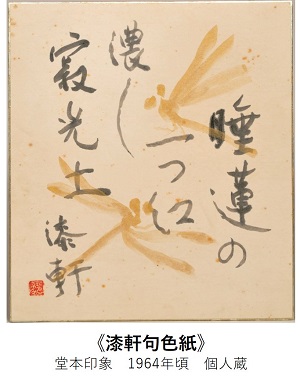 睡蓮の
一つ紅
濃し
寂光土
漆軒
《漆軒句色紙》
堂本印象　1964年頃　個人蔵